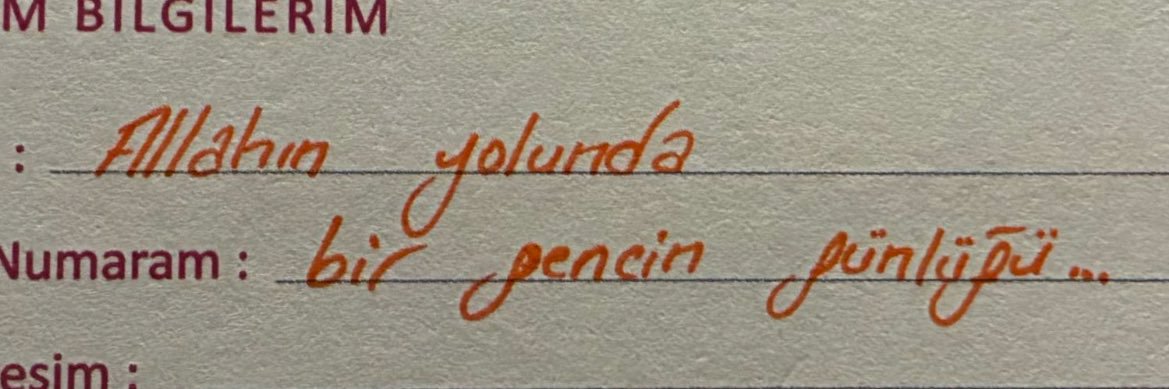 M BİLGİLERİM
: Allahın yolunda
Numaram : bir gencin günlüğü...
esim :